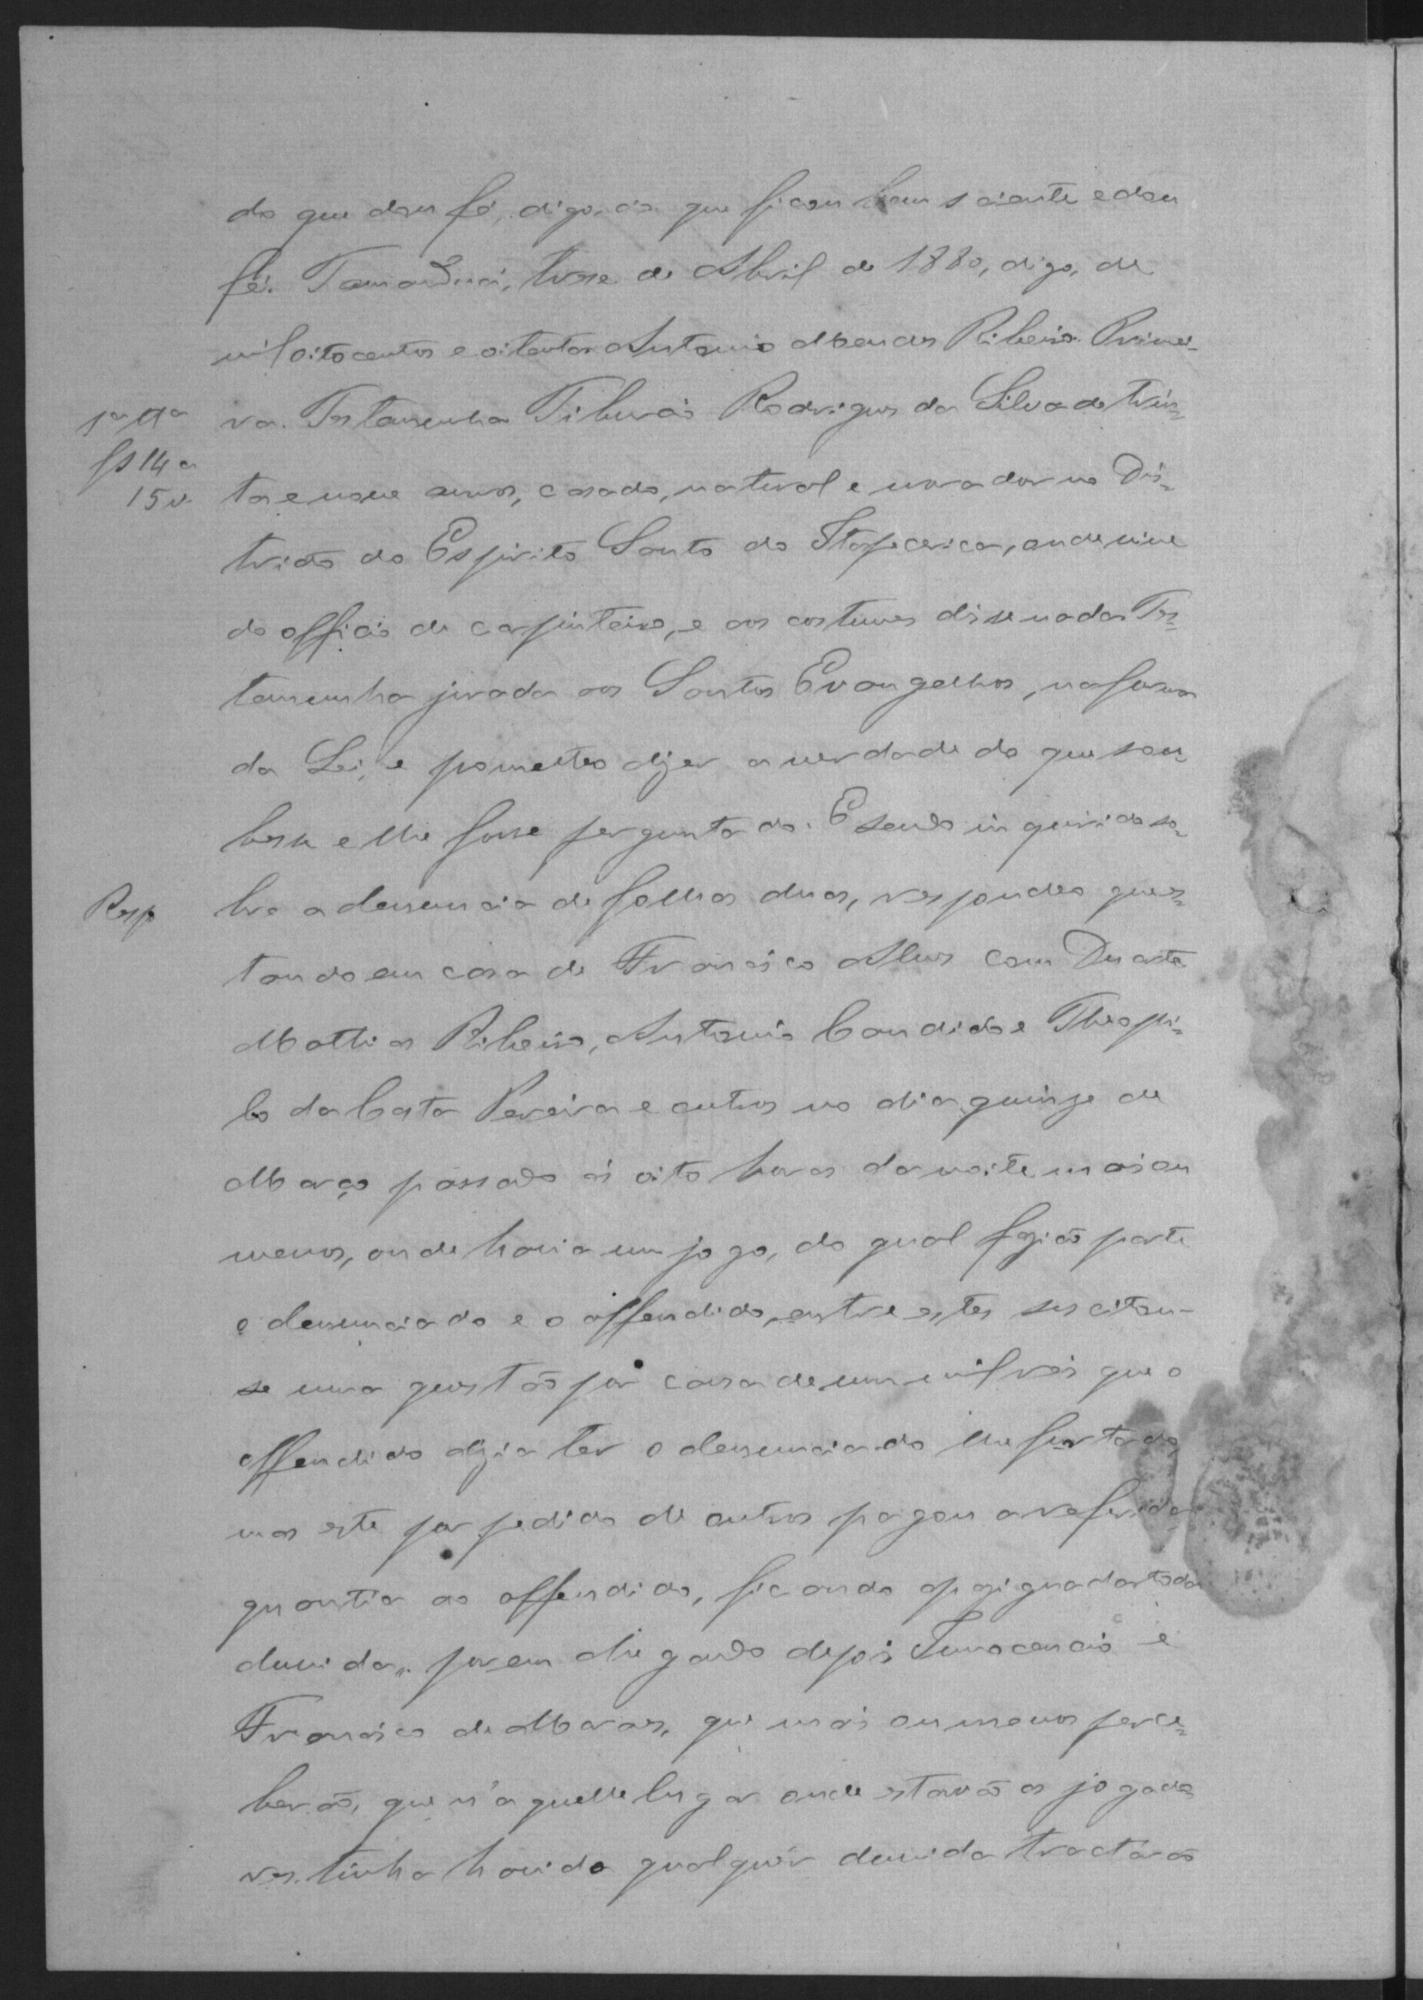 do que dou fé, digo, do que ficou bem sciente e dou
fé. Tamanduá, treze de Abril de 1880, digo, de
mil oitocentos e oitenta Antonio Mendes Ribeiro. Primei-
1ª Tª
ra. Testamunha Tiburcio Rodrigues da Silva de trin-
fs 14 a
15 v.
ta e nove annos, casado, natural e morador no Dis-
tricto do Espirito Santo do Itapecerica, onde vive
do officio de carpinteiro, e aos costumes disse nada. Tes-
tamunha jurada aos Santos Evangelhos, na forma
da Lei, e prometteo dizer a verdade do que sou-
besse e lhe fosse perguntado. E sendo inquirido so-
Resp
bre a denuncia de folhas duas, respondeo que es-
tando em casa de Francisco Alves com Duarte
Mathias Ribeiro, Antonio Candido e Theophi-
lo da Costa Pereira e outros no dia quinze de
Março passado ás oito horas da noite mais ou
menos, onde havia um jogo, do qual fazião parte
o denunciado e o offendido, entre estes suscitou-
se uma questão por causa de um mil réis que o
offendido dizia ter o denunciado lhe furtado,
mas este por pedido de outros pagou a referida
quantia ao offendido, ficando apaziguada toda
duvida, porem chegando depois Innocencio e
Francisco de Moraes, que mais ou menos perce-
berão, que n'aquelle lugar onde estavão os jogado-
res tinha havido qualquér duvida tractarão